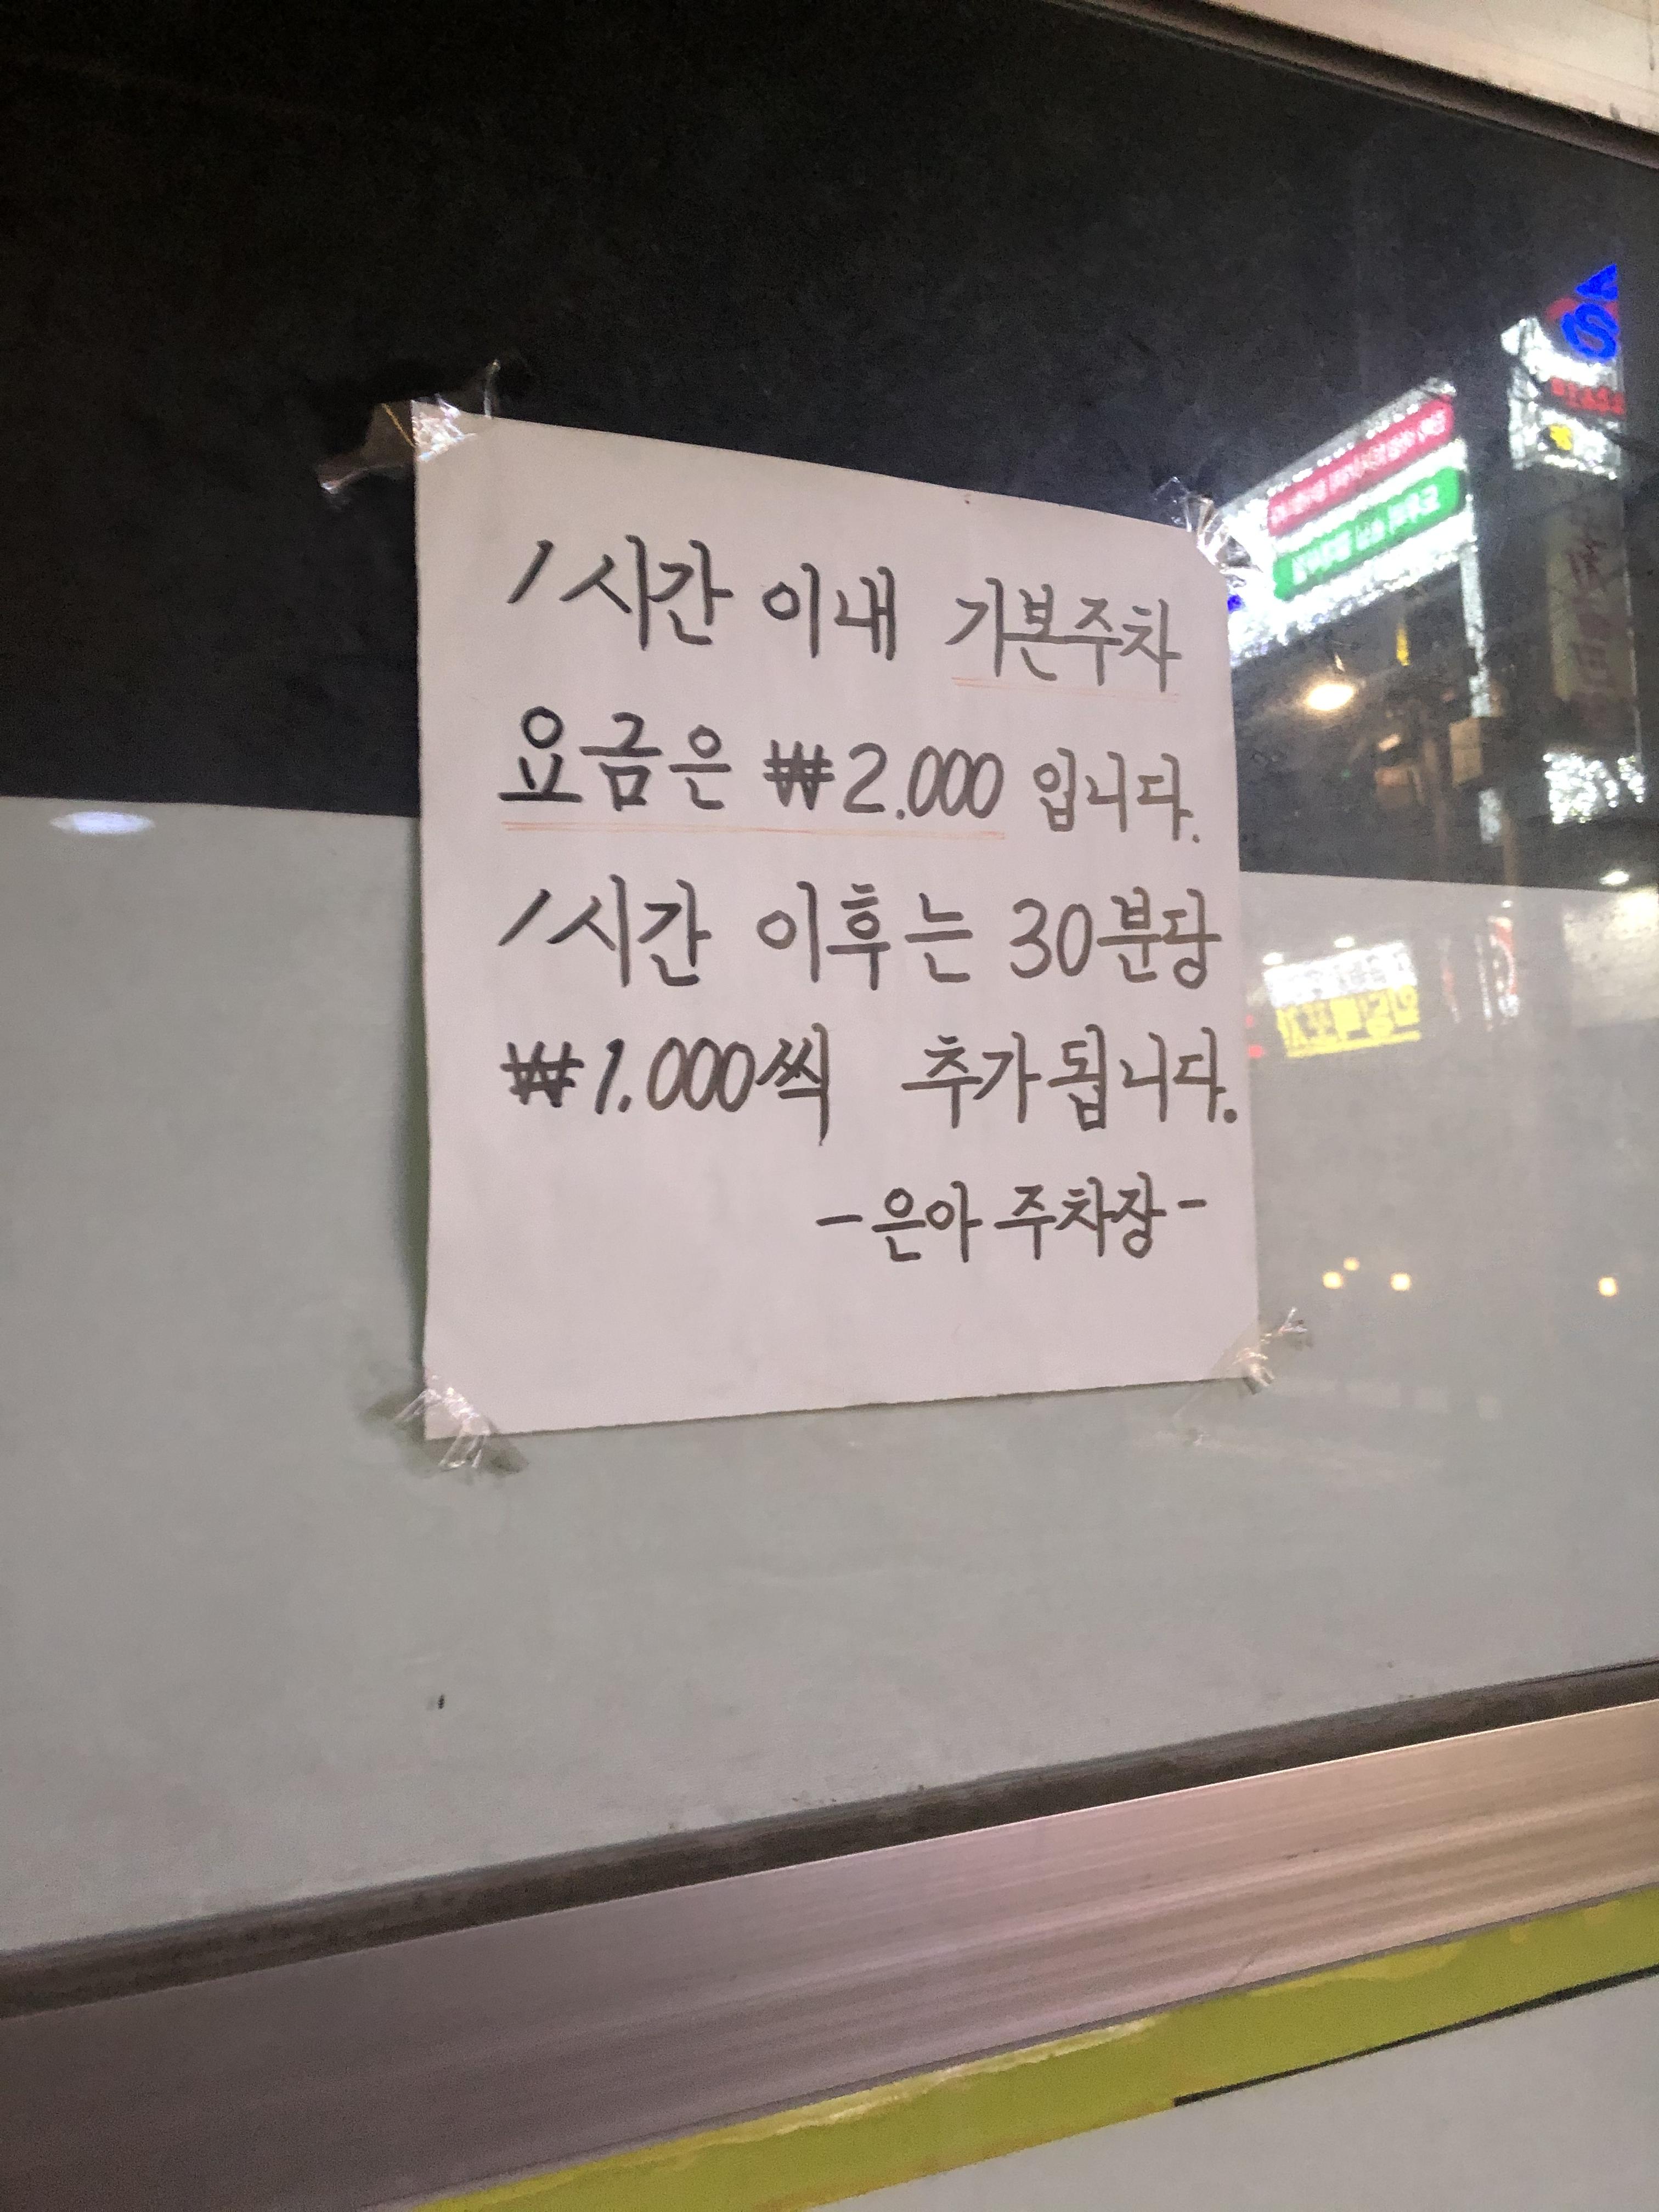 1시간 이내 기본주차
요금은 ₩2.000 입니다.
1시간 이후는 30분당
₩1.000씩 추가됩니다.
-은아 주차장-